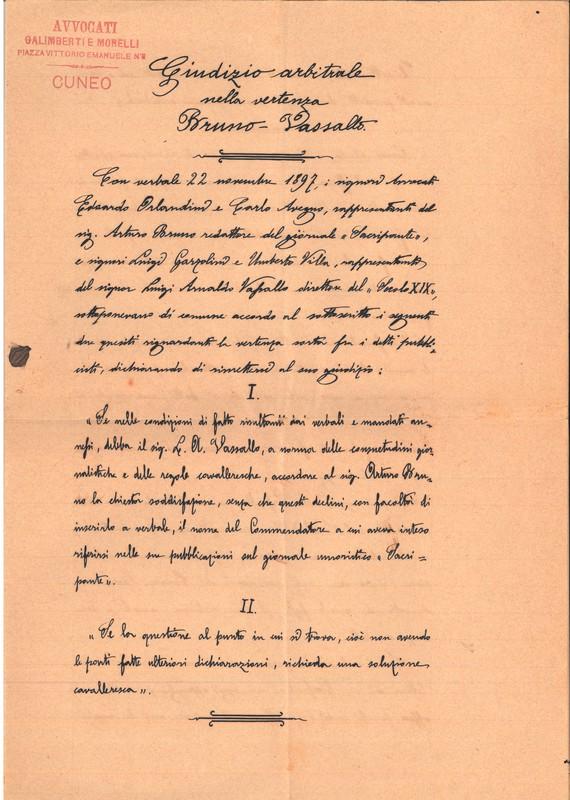 AVVOCATI
GALIMBERTI E MORELLI
PIAZZA VITTORIO EMANUELE N° 8
CUNEO
Giudizio arbitrale
nella vertenza
Bruno - Vassallo.
Con verbale 22 novembre 1897, i signori Avvocati
Edoardo Orlandini e Carlo Avegno, rappresentanti del
sig. Arturo Bruno redattore del giornale "Sacripante",
e signori Luigi Garzolini e Umberto Villa, rappresentanti
del signor Luigi Arnaldo Vassallo direttore del "Secolo XIX",
sottoponevano di comune accordo al sottoscritto i seguenti
due quesiti riguardanti la vertenza sorta fra i detti pubbli-
cisti, dichiarando di rimettersi al suo giudizio:
I.
"Se nelle condizioni di fatto risultanti dai verbali e mandati an-
nessi, debba il sig. L. A. Vassallo, a norma delle consuetudini gior-
nalistiche e delle regole cavalleresche, accordare al sig. Arturo Bru-
no la chiesta soddisfazione, senza che questi declini, con facoltà di
inserirlo a verbale, il nome del Commendatore a cui aveva inteso
riferirsi nelle sue pubblicazioni sul giornale umoristico "Sacri-
pante".
II.
"Se la questione al punto in cui si trova, cioè non avendo
le parti fatte ulteriori dichiarazioni, richieda una soluzione
cavalleresca".